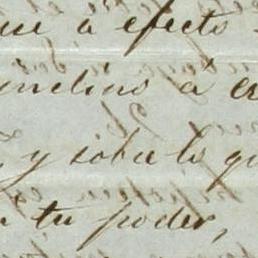 que á efecto
inclino á
y sobre lo qu
tu poder,